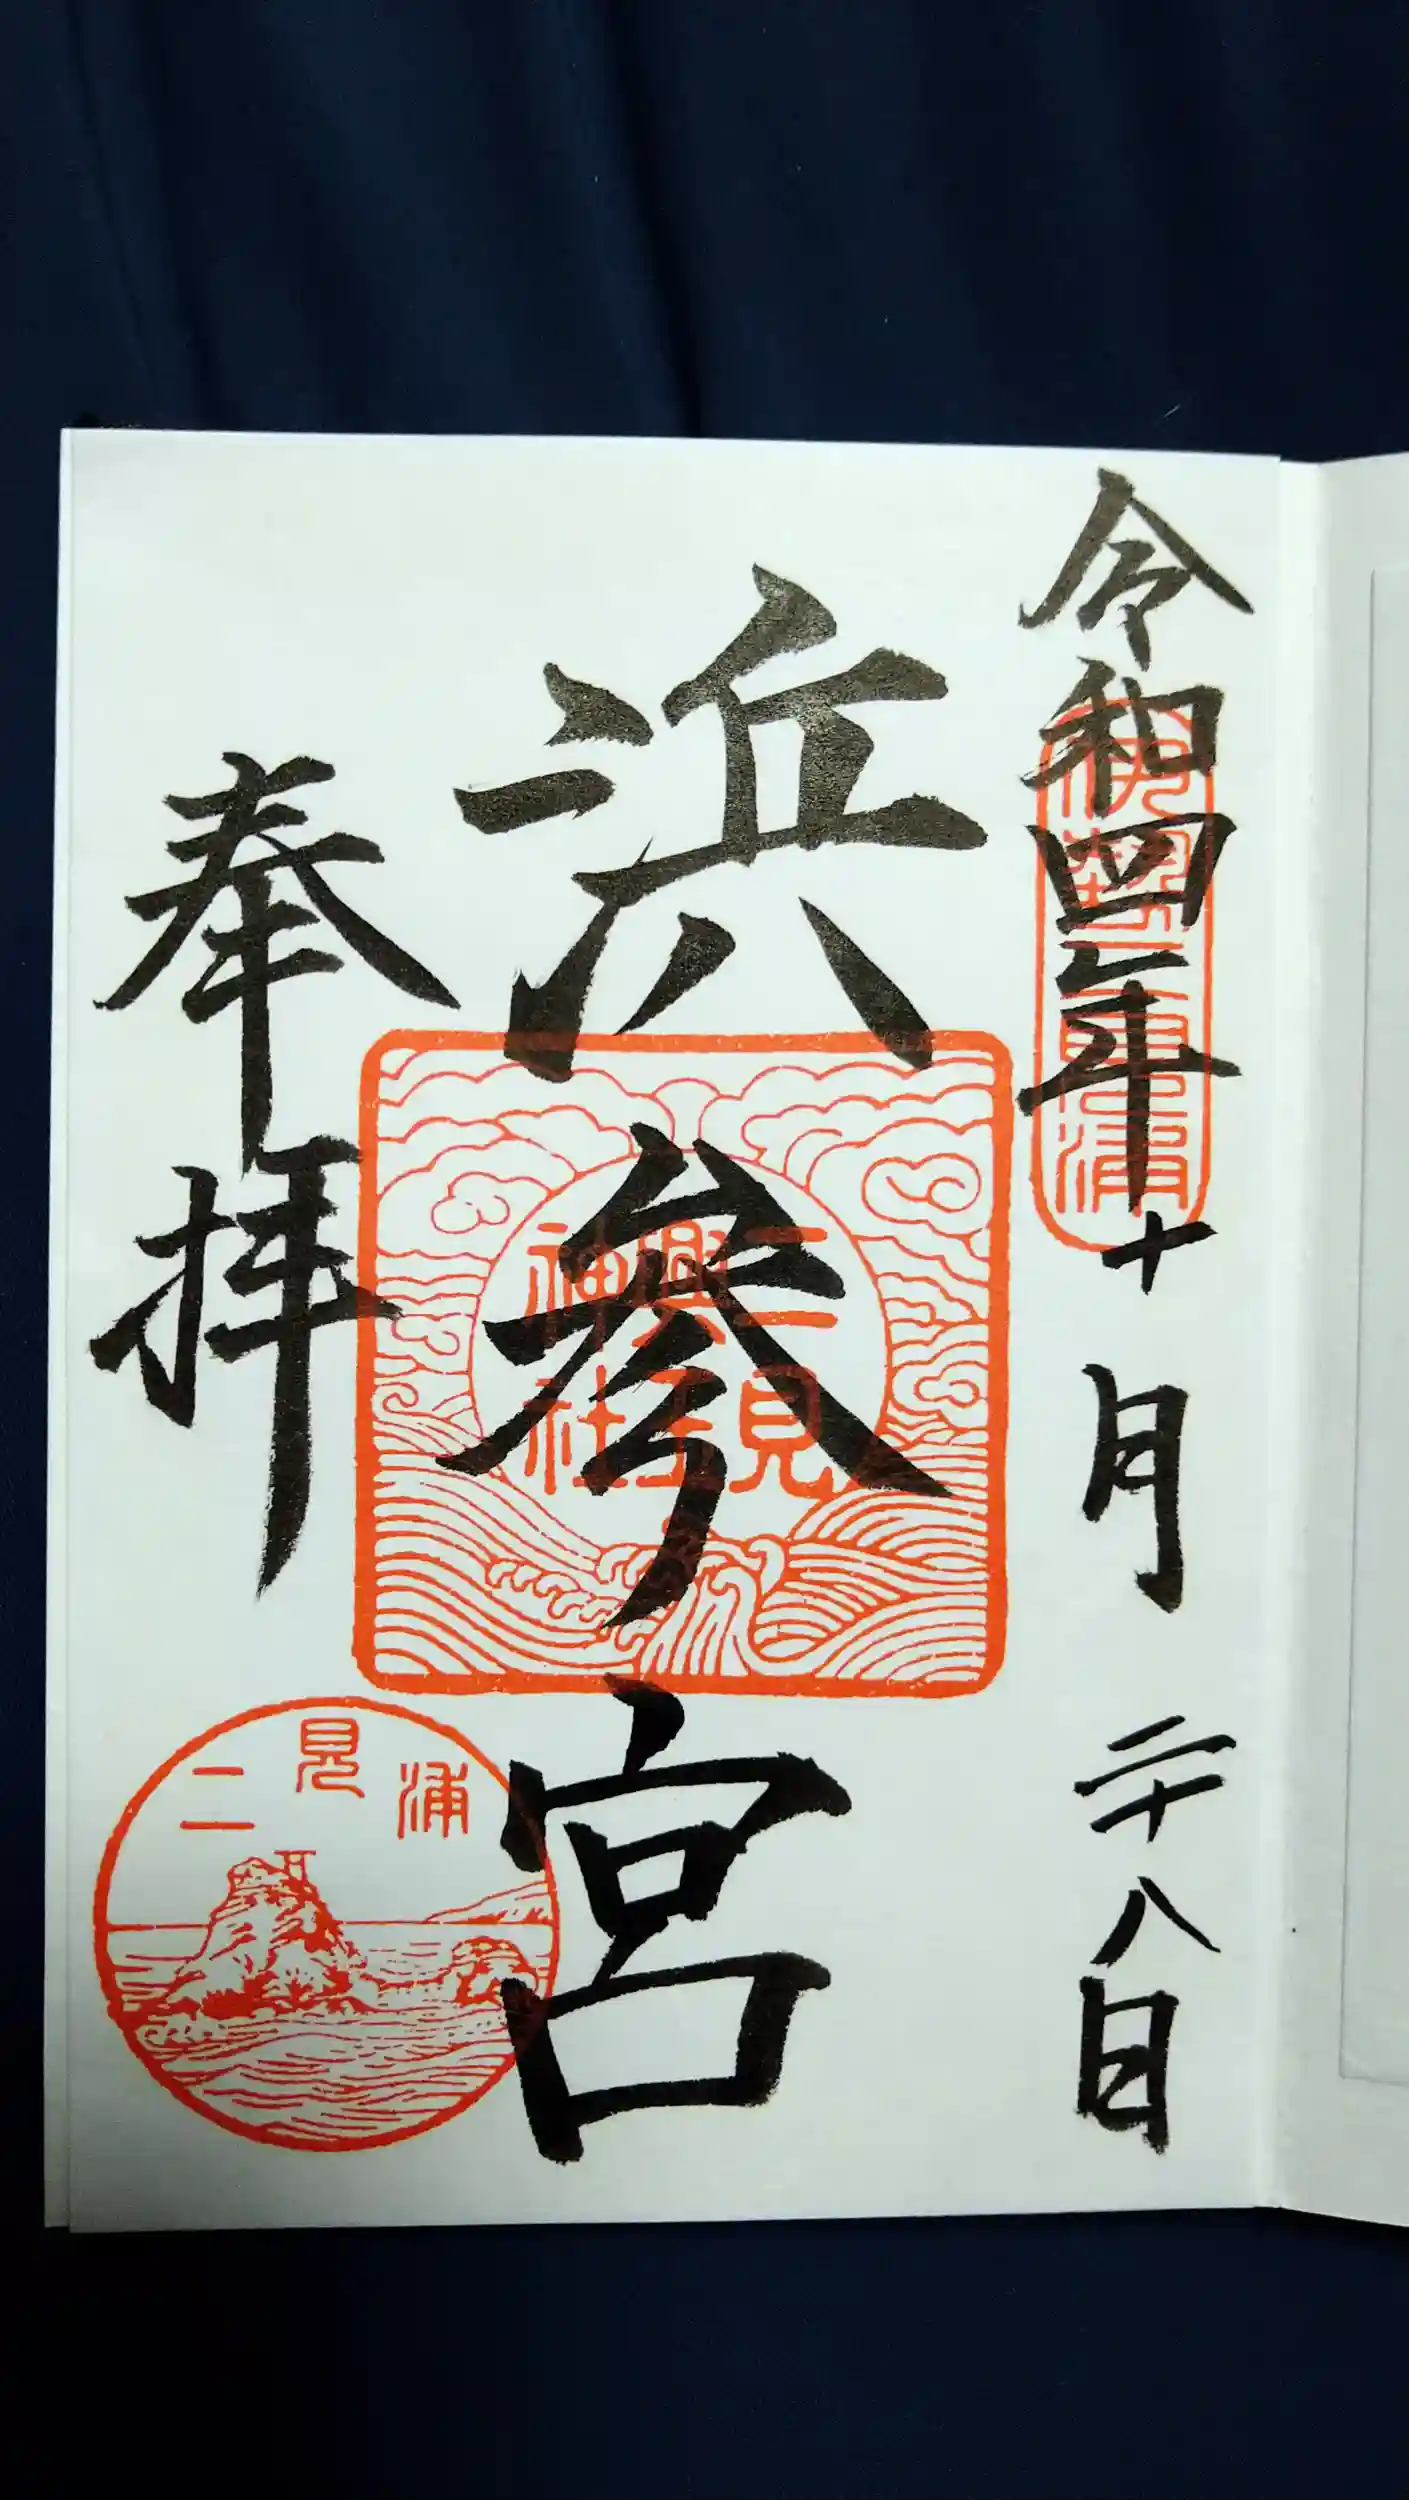 令和四年十月二十八日
伊勢二見浦
浜参宮
二見興玉神社
奉拝
二見浦